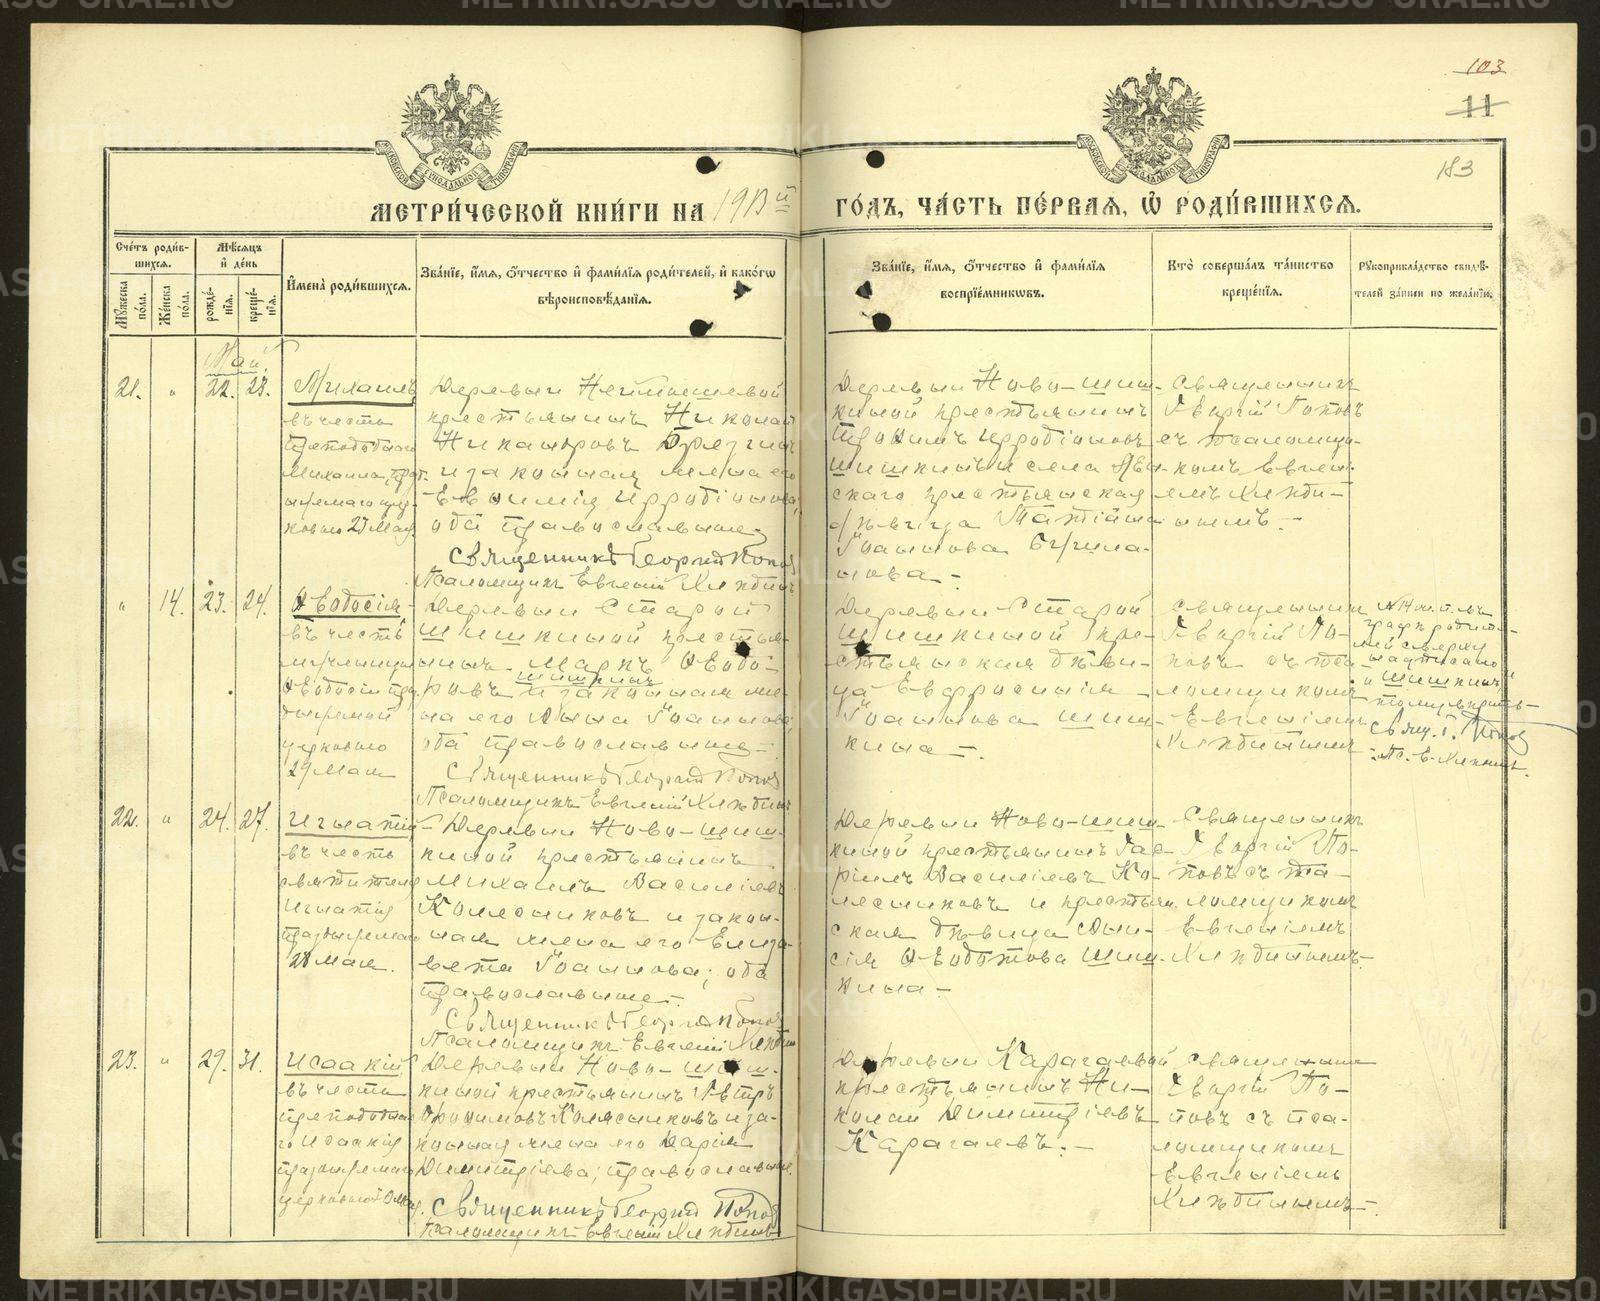 103
11
183
МЕТРИ́ЧЕСКОЙ КНИ́ГИ НА 1913й ГО́ДЪ, ЧА́СТЬ ПЕ́РВАЯ, Ѡ РОДИ́ВШИХСЯ.
Сче́тъ роди́в-
шихся.
Мꙋ́жеска по́ла.
Же́нска по́ла.
Мѣ́сяцъ
и҆ де́нь
рожде-
нїя.
креще́-
нїя.
И҆мена̀ роди́вшихся.
Зва́нїе, и҆́мя, ѻ҆́тчество и҆ фами́лїя роди́телей, и҆ како́гѡ
вѣроисповѣ́данїя.
Зва́нїе, и҆́мя, ѻ҆́тчество и҆ фами́лїя
воспрїе́мникѡвъ.
Кто̀ соверша́лъ та́инство
креще́нїя.
Рꙋкоприкла́дство свидѣ́-
телей за́писи по жела́нїю.
Май.
21. " 22. 23.
Михаилъ
въ честь
преподобнаго
Михаила, праз-
днуемаго цер-
ковью 23 Мая.
Деревни
крестьянинъ Николай
Никаноровъ
и законная жена его
Евѳимія Иродіонова;
оба православные
Священникъ Георгій Поповъ
Псаломщикъ Евгеній Хлѣбинъ
Деревни Ново-Шиш-
киной крестьянинъ
Трофимъ Иродіоновъ
Шишкинъ и села
скаго крестьянская
дѣвица Татіана
Іоаннова
нова.-
Священникъ
Георгій Поповъ
съ псаломщи-
комъ Евгені-
емъ Хлѣби-
нымъ.-
" 14. 23. 24.
Ѳеодосія
въ честь
мученицы
Ѳеодосіи праз-
днуемой
церковью
29 Мая
Деревни Старой
Шишкиной крестья-
нинъ Маркъ Ѳеодо-
ровъ Шишкинъ и законная же-
на его Анна Іоаннова;
оба православные.
Священникъ Георгій Поповъ
Псаломщикъ Евгеній Хлѣбинъ
Деревни Старой
Шишкиной кре-
стьянская дѣви-
ца Евфросинія
Іоаннова Шиш-
кина.-
Священникъ
Георгій По-
повъ съ пса-
ломщикомъ
Евгеніемъ
Хлѣбинымъ
№ 14 ж. п. въ
графѣ родите-
лей сверху
надписано
"Шишкинъ"
тому вѣрить-
Свящ. Г. Поповъ
Пс. Е. Хлѣбинъ.
22. " 24. 27.
Игнатій
въ честь
святителя
Игнатія
празднуемаго
28 Мая.
Деревни Ново-Шиш-
киной крестьянинъ
Михаилъ Василіевъ
Колесниковъ и закон-
ная жена его Елиза-
вета Іоаннова; оба
православные.
Священникъ Георгій Поповъ
Псаломщикъ Евгеній Хлѣбинъ
Деревни Ново-Шиш-
киной крестьянинъ
Василіевъ Ко-
лесниковъ и крестьян-
ская дѣвица
Ѳеодотова Шиш-
кина.-
Священникъ
Георгій По-
повъ съ пса-
ломщикомъ
Евгеніемъ
Хлѣбинымъ.
23. " 29. 31.
Исаакій
въ честь
преподобна-
го Исаакія
празднуемаго
церковью 30 Мая.
Деревни Ново-Шиш-
киной крестьянинъ Петръ
Трофимовъ Колясниковъ и за-
конная жена его Дарія
Димитріева; православные.
Священникъ Георгій Поповъ
Псаломщикъ Евгеній Хлѣбинъ
Деревни Карагаевой
крестьянинъ Ни-
колай Димитріевъ
Карагаевъ.-
Священникъ
Георгій По-
повъ съ пса-
ломщикомъ
Евгеніемъ
Хлѣбинымъ.
METRIKI.GASO-URAL.RU